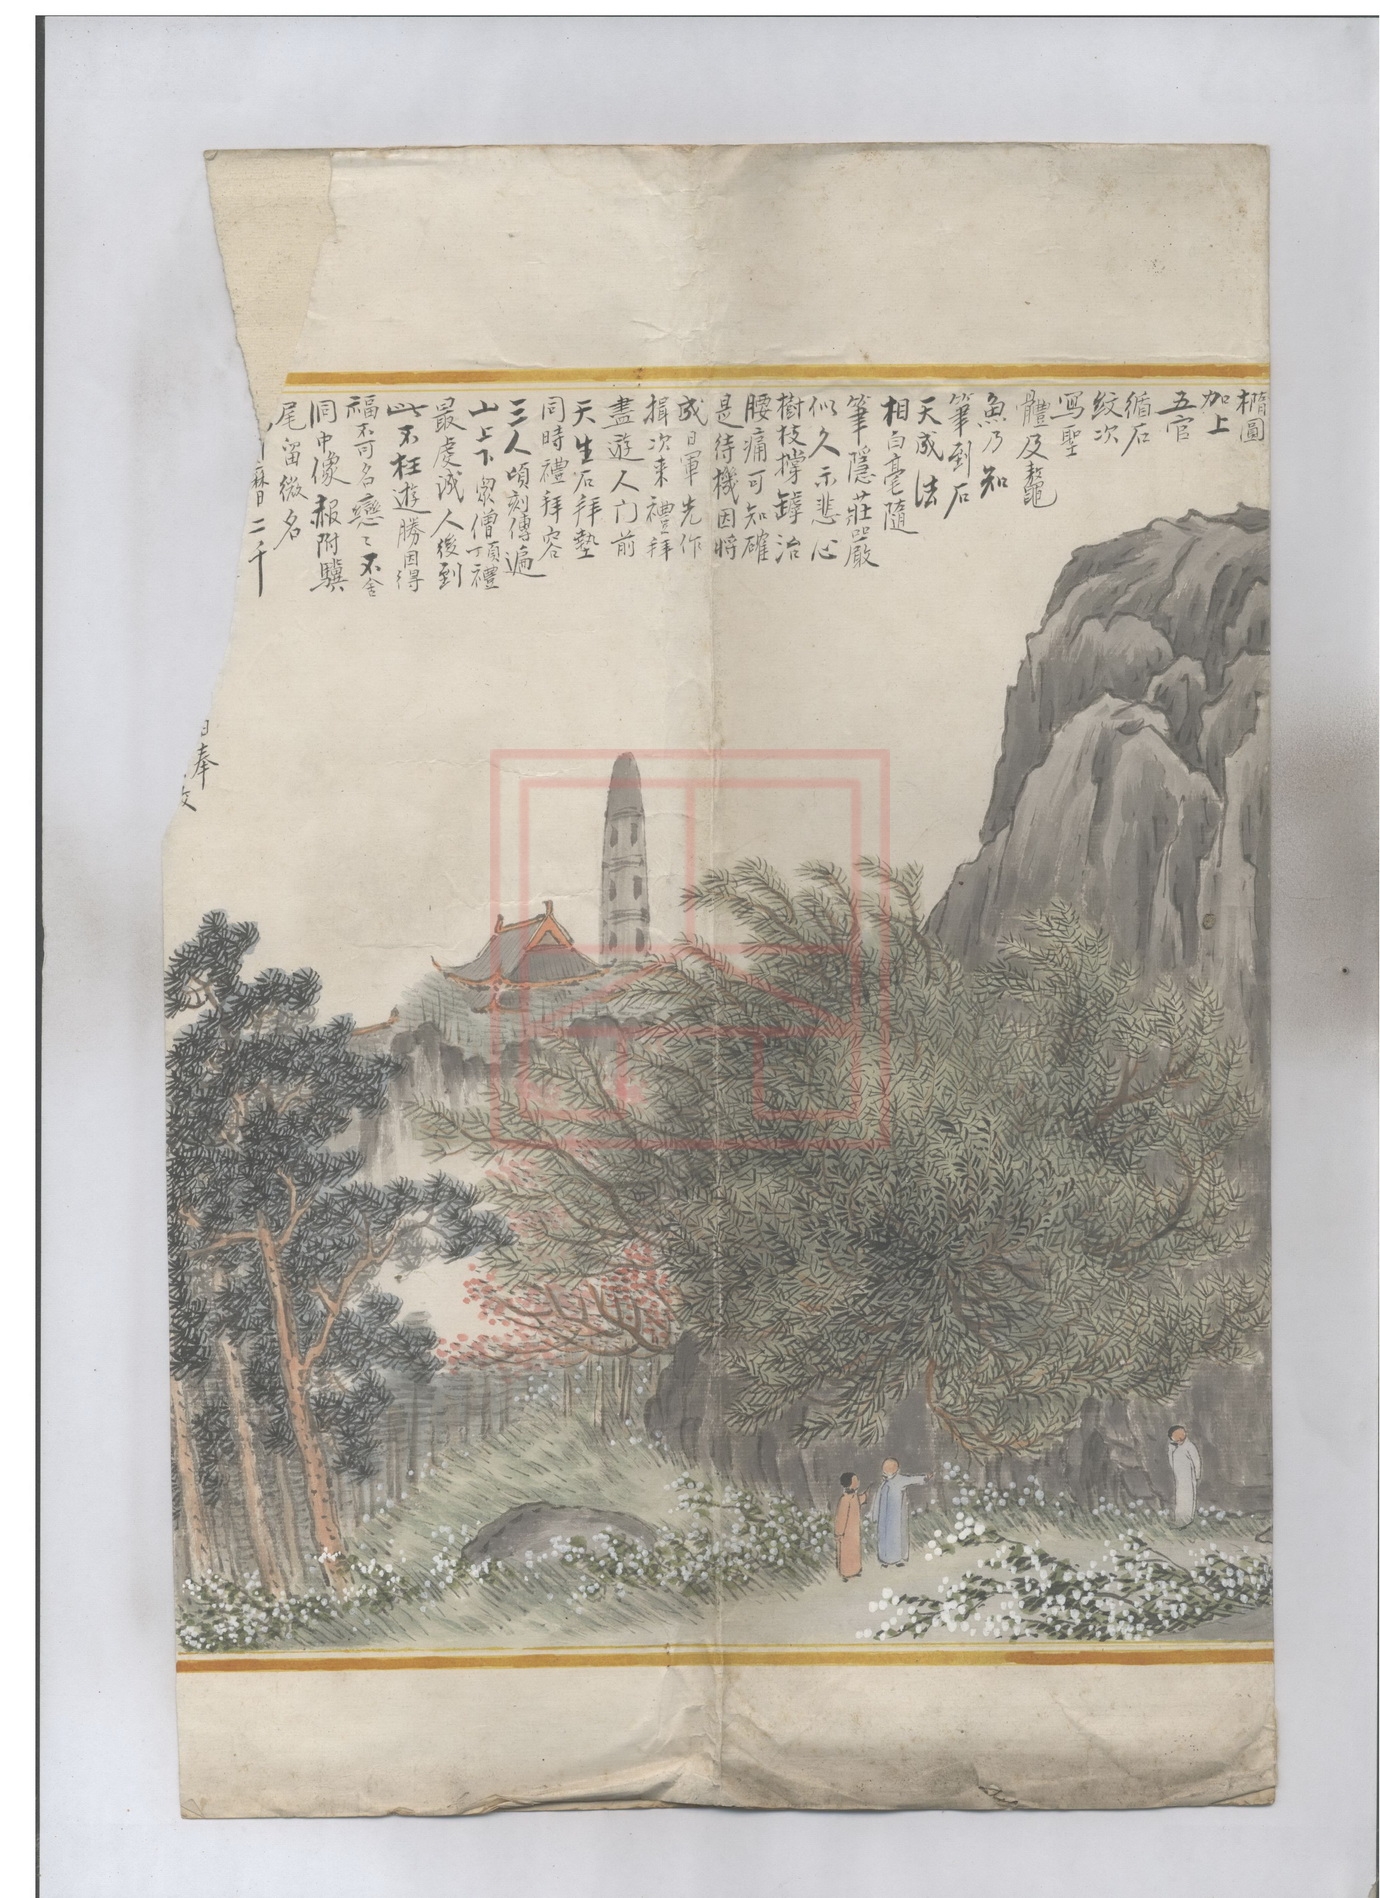 橢圖
加上
五官
循石
紋次
寫聖
體及鼇
魚乃知
筆到石
天成法
相白毫隨
筆隱莊嚴
似久示悲心
樹枝撐罅治
腰痛可知確
是待機因將
成日軍先作
揖次来禮拜
盡遊人门前
天生石拜墊
同時禮拜容
三人頃刻傳遍
山上下眾僧頂禮
最虔誠人後到
此不枉遊勝因得
福不可名戀〻不舍
洞中像報附驥
尾留微名
曆二千
日奉